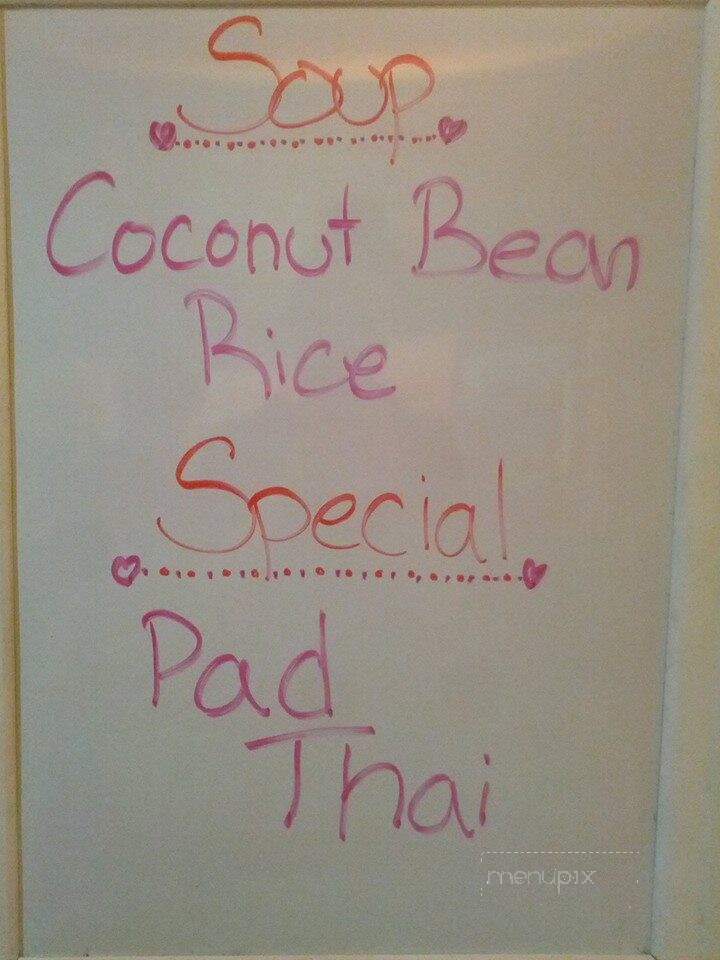 Soup
Coconut Bean
Rice
Special
Pad
Thai
menupix